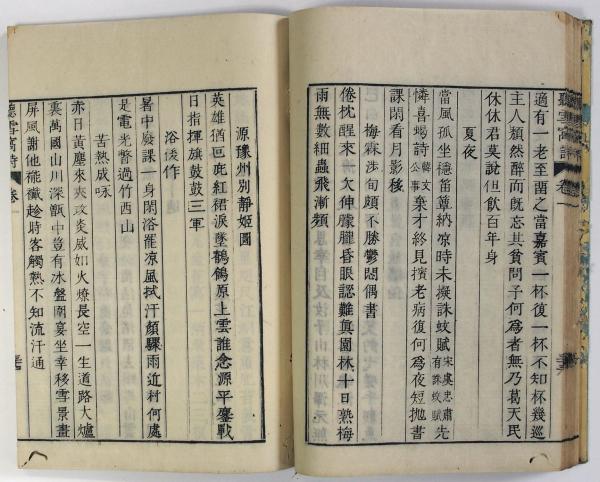 聽雪窩詩 卷一
適有一老至畱之當嘉賓一杯復一杯不知杯幾巡
主人頹然醉而旣忘其貧問子何爲者無乃葛天民
休休君莫說但飲百年身
夏夜
當風孤坐穩笛簟納凉時未擬誅蚊賦宋虞忠肅有誅蚊賦先
憐喜蝎詩韓文公事棄才終見擯老病復何爲夜短拋書
課閑看月影移
梅霖涉旬頗不勝鬱悶偶書
倦枕醒來欠伸朦朧昏眼認難眞園林十日熟梅
雨無數細蟲飛漸頻
源豫州別靜姬圖
英雄猶叵庇紅裙淚墜鶺鴒原上雲誰念源平鏖戰
日指揮旗鼓鼓三軍
浴後作
暑中廢課一身閑浴罷凉風拭汗顏驟雨近村何處
是電光瞥過竹西山
苦熱戚咏
赤日黃塵來夾攻炎威如火燎長空一生道路大爐
裏萬國山川深甑中豈有冰盤開宴坐幸移雪景畫
屏風謝他能趁時客觸熱不知流汗通
聽雪窩詩 卷一